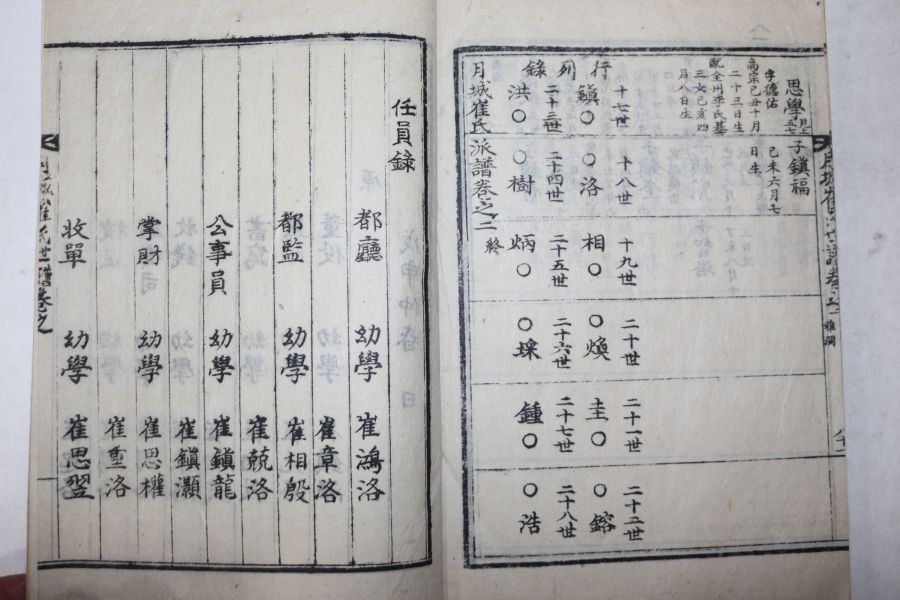 思學 見上五七
字德佑
高宗己丑十月
二十三日生
配全州李氏墓
三女己亥四
月八日生
子鎭福
己未六月七
日生
行列錄
十七世 鎭○
十八世 ○洛
十九世 相○
二十世 ○煥
二十一世 圭○
二十二世 ○鎔
二十三世 洪○
二十四世 ○樹
二十五世 炳○
二十六世 ○埰
二十七世 鍾○
二十八世 ○浩
月城崔氏派譜卷之二 終
任員錄
都廳 幼學 崔鴻洛
崔章洛
都監 幼學 崔相殷
崔兢洛
公事員 幼學 崔鎭龍
崔鎭灝
掌財 幼學 崔思權
崔重洛
收單 幼學 崔思翌